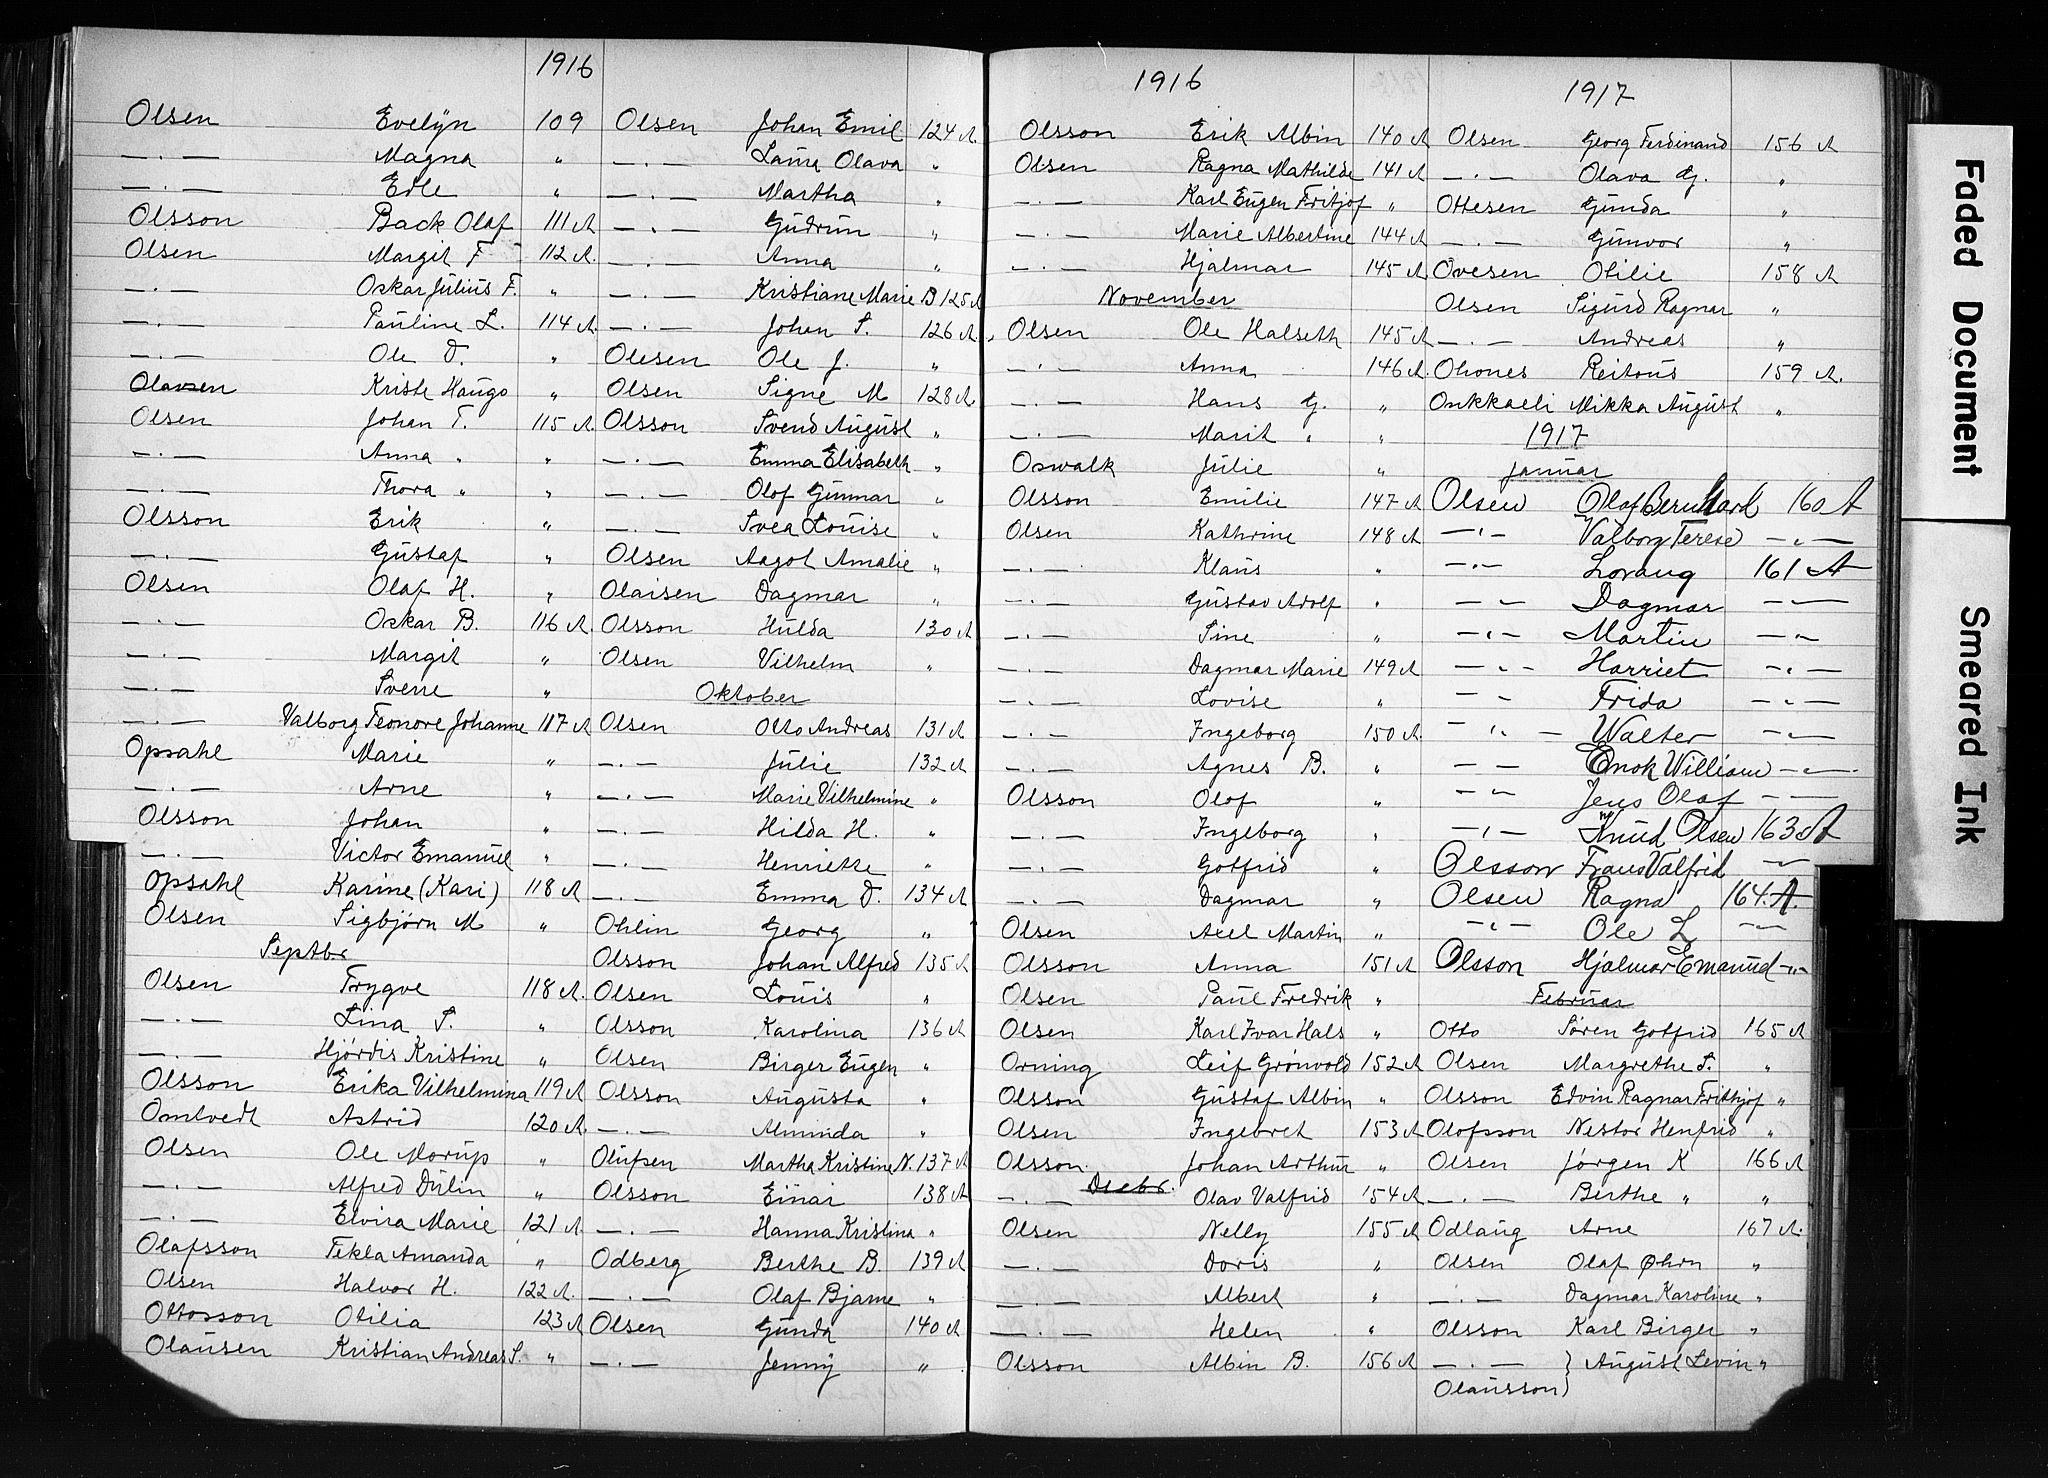 1916
Olsen Evelyn 109
—·— Magna "
—·— Edle "
Olsson Back Olaf 111 A
Olsen Margit F 112 A.
—·— Oskar Julius F. "
—·— Pauline L. 114 A.
—·— Ole D. "
Olavsen Kriste Haugo "
Olsen Johan T. 115 A.
—·— Anna " "
—·— Thora " "
Olsson Erik "
—·— Gustaf "
Olsen Olaf H. "
—·— Oskar B. 116 A.
—·— Margit "
—·— Sverre "
—·— Valborg Teonore Johanne 117 A
Opsahl Marie "
—·— Arne "
Olsson Johan "
—·— Victor Emanuel "
Opsahl Karine (Kari) 118 A
Olsen Sigbjørn M "
Septbr
Olsen Trygve 118 A.
—·— Lina S. "
—·— Hjørdis Kristine "
Olsson Erika Vilhelmina 119 A
Omtvedt Astrid 120 A.
Olsen Ole Morup "
—·— Alfred Dulin "
—·— Elvira Marie 121 A.
Olafsson Tekla Amanda "
Olsen Halvor H. 122 A.
Ottosson Otilia 123 A
Olausen Kristian Andreas S. "
Olsen Johan Emil 124 A.
—·— Laura Olava "
—·— Martha "
—·— Gudrun "
—·— Anna "
—·— Kristiane Marie B 125 A
—·— Johan S. 126 A.
Olesen Ole J. "
Olsen Signe M 128 A.
Olsson Svend August "
—·— Emma Elisabeth "
—·— Olof Gunnar "
—·— Svea Louise "
Olsen Aagot Amalie "
Olaisen Dagmar "
Olsson Hulda 130 A
Olsen Vilhelm "
Oktober
Olsen Otto Andreas 131 A
—·— Julie 132 A
—·— Marie Vilhelmine "
—·— Hilda H. "
—·— Henriette "
—·— Emma D. 134 A
Ohlin Georg "
Olsson Johan Alfred 135 A
Olsen Louis "
Olsson Karolina 136 A
Olsen Birger Eugen "
Olsson Augusta "
—·— Alminda "
Olufsen Martha Kristine N. 137 A
Olsson Einar 138 A
—·— Hanna Kristina "
Odberg Berthe B. 139 A
—·— Olaf Bjarne "
Olsen Gunda 140 A
—·— Jenny "
1916
Olsson Erik Albin 140 A
Olsen Ragna Mathilde 141 A
—·— Karl Eugen Fritjof "
—·— Marie Albertine 144 A
—·— Hjalmar 145 A
November
Olsen Ole Halseth 145 A
—·— Anna 146 A.
—·— Hans G. "
—·— Marit " "
Oswalk Julie "
Olsson Emilie 147 A
Olsen Kathrine 148 A
—·— Klaus "
—·— Gustav Adolf "
—·— Sine "
—·— Dagmar Marie 149 A
—·— Lovise "
—·— Ingeborg 150 A.
—·— Agnes B. "
Olsson Olof "
—·— Ingeborg "
—·— Gotfrid "
—·— Dagmar "
Olsen Axel Martin "
Olsson Anna 151 A
Olsen Paul Fredrik "
Olsen Karl Ivar Hals "
Orning Leif Grønvold 152 A
Olsson Gustaf Albin "
Olsen Ingebret 153 A
Olsson Johan Arthur "
Decbr.
—·— Olav Valfrid 154 A
Olsen Nelly 155 A
—·— Doris "
—·— Albert "
—·— Helen "
Olsson Albin B. 156 A
1917
Olsen Georg Ferdinand 156 A
—·— Olava G. "
Ottesen Gunda "
—·— Gunvor "
Ovesen Otilie 158 A
Olsen Sigurd Ragnar "
—·— Andreas "
Ohones Reitous 159 A.
Onkkaeli Mikka August "
1917
Januar
Olsen Olaf Bernhard 160 A
—·— Valborg Terese —·—
—·— Loraug 161 A
—·— Dagmar —·—
—·— Martin —·—
—·— Harriet —·—
—·— Frida —·—
—·— Walter —·—
—·— Enok William —·—
—·— Jens Olaf —·—
—·— Knud Olsen 163 A
Olsson Frans Valfrid —·—
Olsen Ragna 164 A.
—·— Ole L —·—
Olsson Hjalmar Emanuel —·—
Februar
Otto Søren Gotfrid 165 A
Olsen Margrethe S. "
Olsson Edvin Ragnar Frithjof "
Olofsson Nestor Henfrid "
Olsen Jørgen K 166 A
—·— Berthe " "
Odlaug Arne 167 A.
Olsen Olaf Øhrn "
—·— Dagmar Karoline "
Olsson Karl Birger "
—·— } August Levin "
Olausson)
Faded Document
Smeared Ink